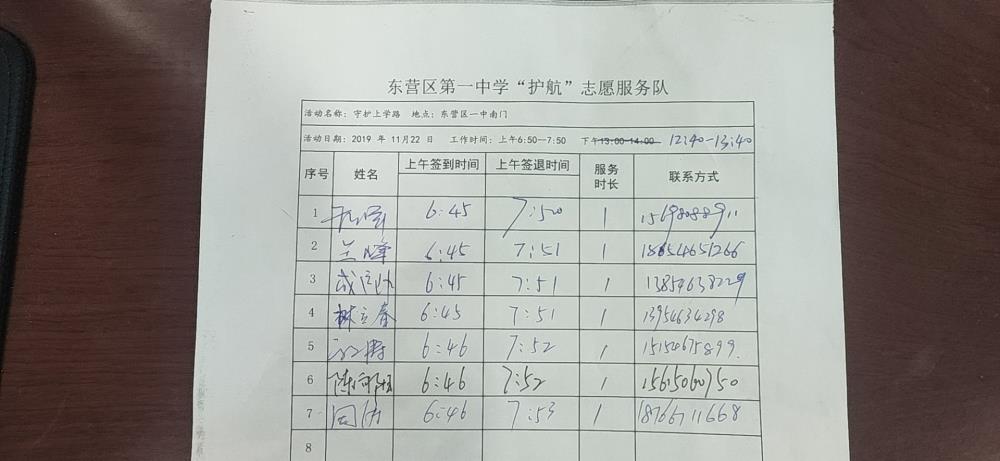 东营区第一中学“护航”志愿服务队
活动名称：守护上学路 地点：东营区一中南门
活动日期：2019 年 11月22 日 工作时间：上午6:50—7:50 下午13:00-14:00 12:40-13:40
序号 姓名 上午签到时间 上午签退时间 服务时长 联系方式
1 6:45 7:50 1
2 兰峰 6:45 7:51 1 18654651266
3 6:45 7:51 1 13854638229
4 林立春 6:45 7:51 1 13954634298
5 6:46 7:52 1 15154675899.
6 6:46 7:52 1
7 周涛 6:46 7:53 1 18766711668
8